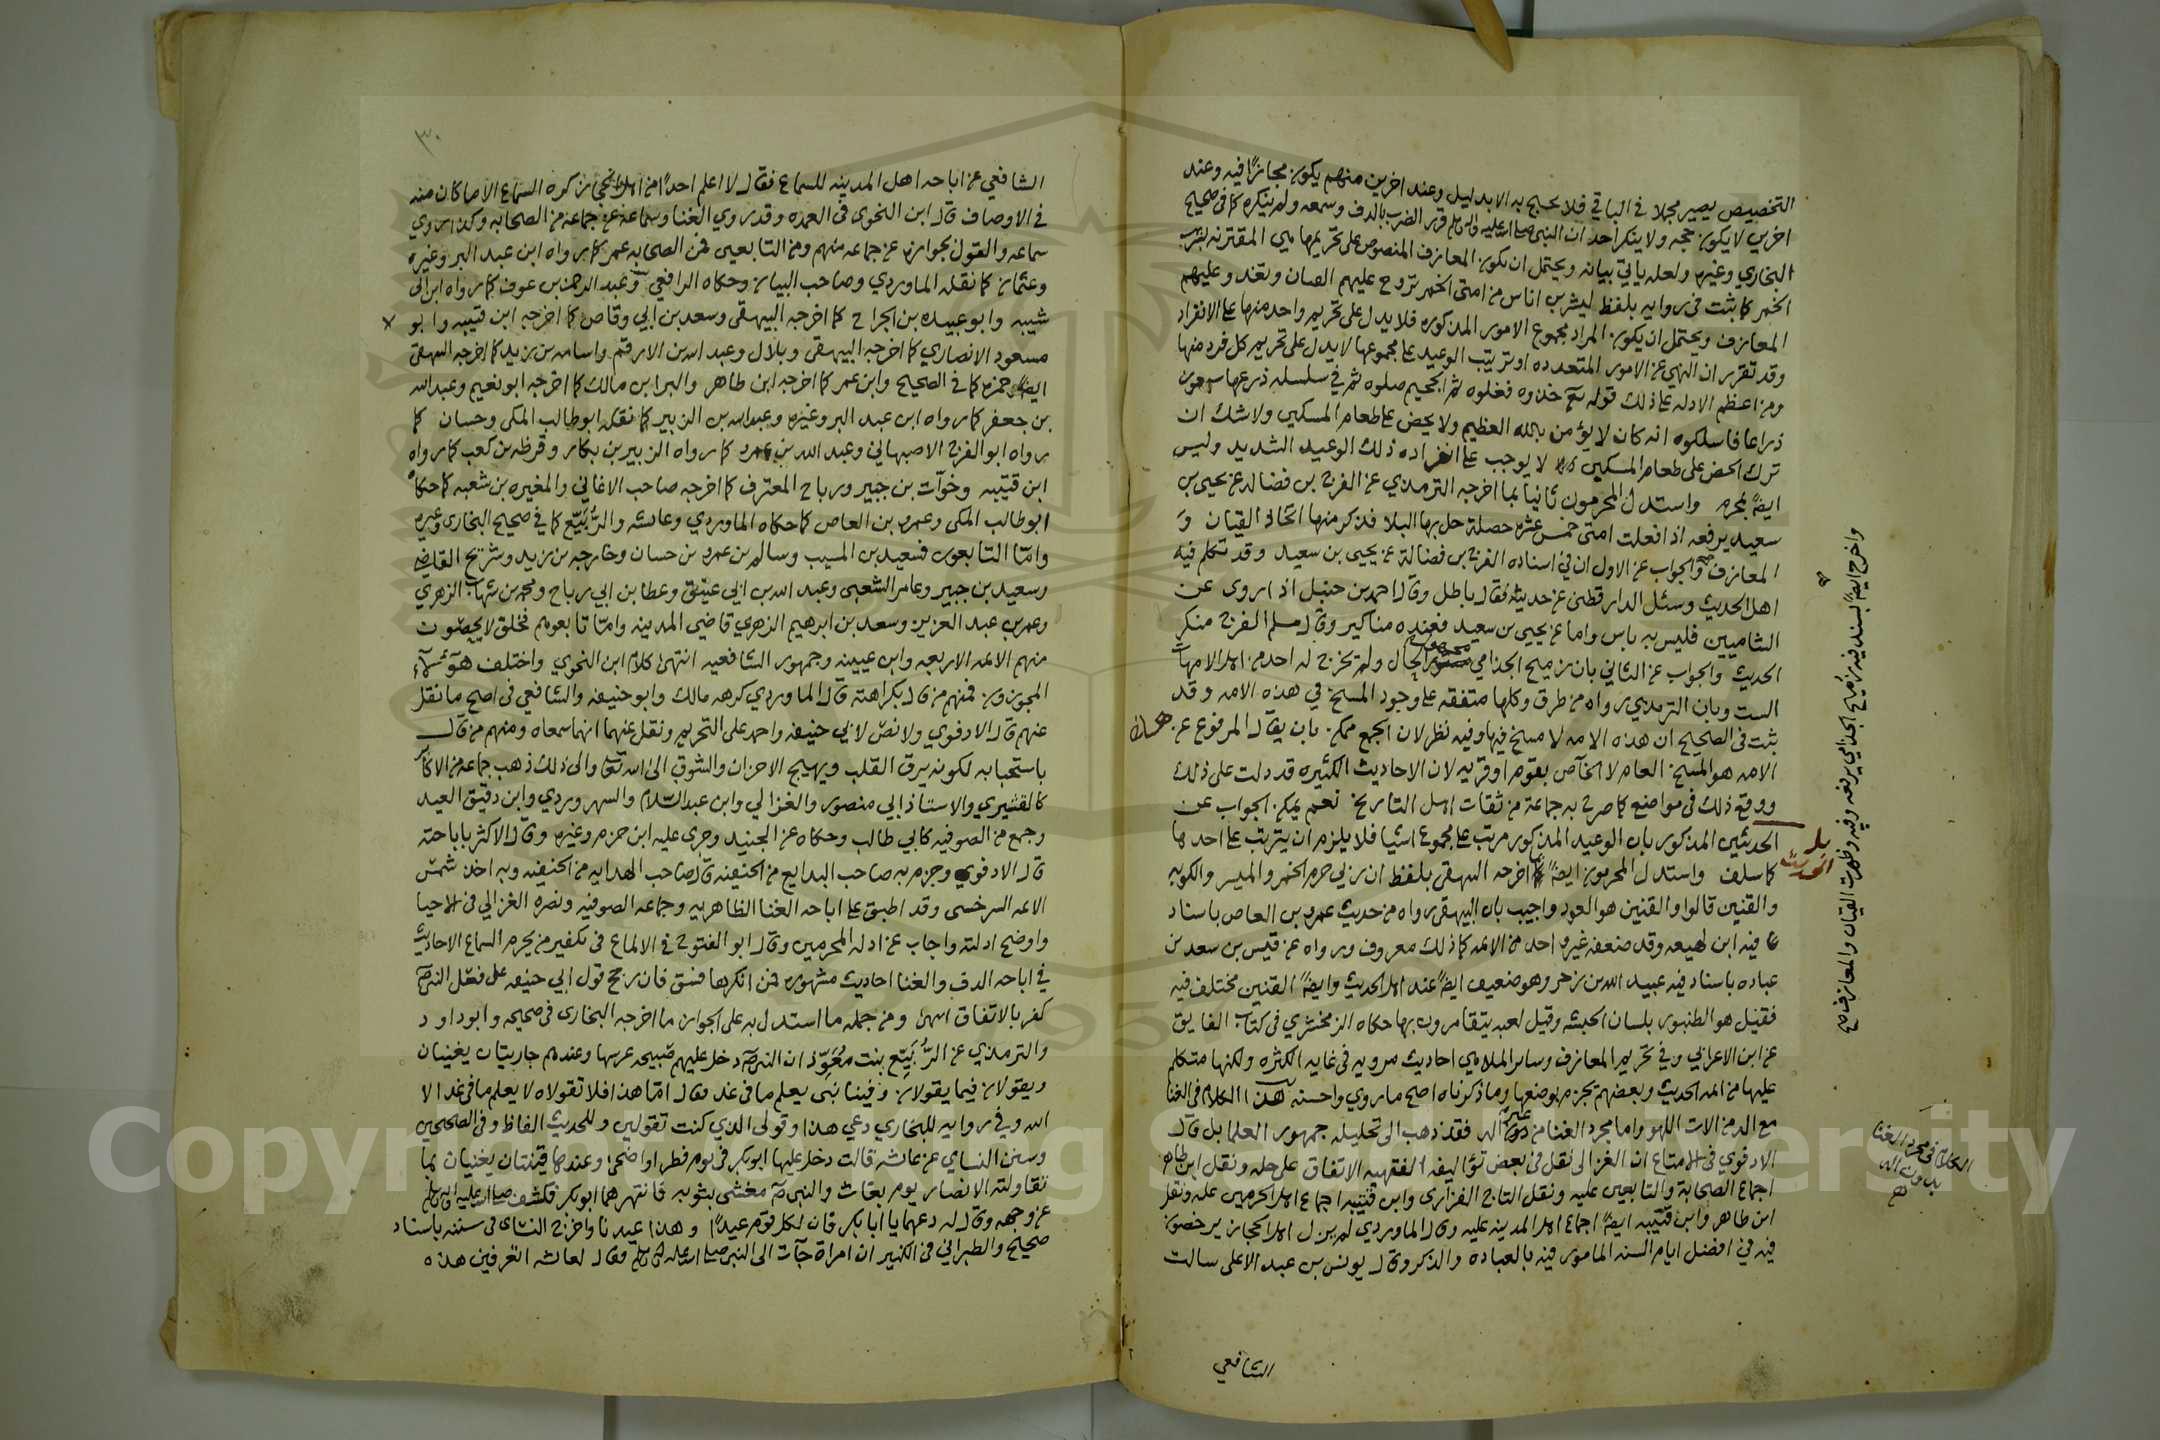 التخصيص يصير مجملا في الباقي فلا يحتج به الا بدليل وعند اخرين منهم يكون مجازا فيه وعند
اخرين لا يكون حجه ولا ينكر احد ان النبي صلى الله عليه واله وسلم قرر الضرب بالدف وسمعه ولم ينكره كما في صحيح
البخاري وغيره ولعله ياتي بيانه ويحتمل ان تكون المعازف المنصوص على تحريمها هي المقترنه بشرب
الخمر كما ثبت في روايه بلفظ ليشربن اناس من امتى الخمر تروح عليهم القيان وتغدو عليهم
المعازف ويحتمل ان يكون المراد مجموع الامور المذكوره فلا يدل على تحريم واحد منها على الانفراد
وقد تقرر ان النهي عن الامور المتعدده او ترتيب الوعيد على مجموعها لا يدل على تحريم كل فرد منها
ومن اعظم الادله على ذلك قوله تع خذوه فغلوه ثم الجحيم صلوه ثم في سلسله ذرعها سبعون
ذراعا فاسلكوه انه كان لا يؤمن بالله العظيم ولا يحض على طعام المسكين ولا شك ان
ترك الحض على طعام المسكين لا يوجب على انفراده ذلك الوعيد الشديد وليس
ايضا بمحرم واستدل المحرمون ثانيا بما اخرجه الترمذي عن الفرج بن فضاله عن يحيى بن
سعيد يرفعه اذا فعلت امتى خمس عشره خصلة حل بها البلا فذكر منها اتخاذ القيان و
المعازف والجواب عن الاول ان في اسناده الفرج بن فضالة عن يحيى بن سعيد وقد تكلم فيه
اهل الحديث وسئل الدارقطني عن حديثه فقال باطل وقال احمد بن حنبل اذا روى عن
الشاميين فليس به باس واما عن يحيى بن سعيد فعنده مناكير وقال مسلم الفرج منكر
الحديث والجواب عن الثاني بان رميح الجذامي مجهول الحال ولم يخرج له احد من اهل الامهات
الست وبان الترمذي رواه من طرق وكلها متفقه على وجود المسخ في هذه الامه وقد
ثبت في الصحيح ان هذه الامه لا مسخ فيها وفيه نظر لان الجمع ممكن بان يقال المرفوع عن هذه
الامه هو المسخ العام لا الخاص بقوم او قريه لان الاحاديث الكثيره قد دلت على ذلك
ووقع ذلك في مواضع كما صرح به جماعة من ثقات اهل التاريخ نعم يمكن الجواب عن
الحديثين المذكور بان الوعيد المذكور مرتب على مجموع اشيا فلا يلزم ان يترتب على احدها
كما سلف واستدل المحرمون ايضا بما اخرجه البيهقي بلفظ ان ربي حرم الخمر والميسر والكوبه
والقنين قالوا والقنين هو العود واجيب بان البيهقي رواه من حديث عمرو بن العاص باسناد
فيه ابن لهيعه وقد ضعفه غير واحد من الائمه كما ذلك معروف ورواه عن قيس بن سعد بن
عباده باسناد فيه عبيد الله بن زحر وهو ضعيف ايضا عند اهل الحديث وايضا القنين مختلف فيه
فقيل هو الطنبور بلسان الحبشه وقيل لعبه يتقامرون بها حكاه الزمخشري في كتاب الفايق
عن ابن الاعرابي وفي تحريم المعازف وسائر الملاهي احاديث مرويه في غايه الكثره ولكنها متكلم
عليها من ائمه الحديث وبعضهم يجزم بوضعها وما ذكرناه اصح ما روي واحسنه هذا الكلام في الغنا
مع اله من الات اللهو واما مجرد الغنا من غير اله فقد ذهب الى تحليله جمهور العلما بل قال
الادفوي في الامتاع ان الغزالي نقل في بعض تواليفه الفقهيه الاتفاق على حله ونقل ابن طاهر
اجماع الصحابة والتابعين عليه ونقل التاج الفزارى وابن قتيبه اجماع اهل الحرمين عليه ونقل
ابن طاهر وابن قتيبه ايضا اجماع اهل المدينه عليه وقال الماوردي لم يزل اهل الحجاز يرخصون
فيه في افضل ايام السنه المامور فيه بالعباده والذكر وقال يونس بن عبد الاعلى سالت
الشافعي
واخرج ايضا بسند فيه رميح الجذامي يرفعه وفيه وظهرت القيان والمعازف صح
الكلام في مجرد الغنا
بدون اله
٣٠
الشافعي عن اباحه اهل المدينه للسماع فقال لا اعلم احدا من اهل الحجاز كره السماع الا ما كان منه
في الاوصاف قال ابن النحوى في العمده وقد روي الغنا وسماعه عن جماعه من الصحابه وكذا روي
سماعه والقول بجوازه عن جماعه منهم ومن التابعين فمن الصحابه عمر كما رواه ابن عبد البر وغيره
وعثمان كما نقله الماوردي وصاحب البيان وحكاه الرافعي وعبد الرحمن بن عوف كما رواه ابن ابي
شيبه وابو عبيده بن الجراح كما اخرجه البيهقي وسعد بن ابي وقاص كما اخرجه ابن قتيبه وابو
مسعود الانصاري كما اخرجه البيهقي وبلال وعبد الله بن الارقم واسامه بن زيد كما اخرجه البيهقي
ايضا وحمزه كما في الصحيح وابن عمر كما اخرجه ابن طاهر والبرا بن مالك كما اخرجه ابو نعيم وعبد الله
بن جعفر كما رواه ابن عبد البر وغيره وعبد الله بن الزبير كما نقله ابو طالب المكي وحسان كما
رواه ابو الفرج الاصبهاني وعبد الله بن عمرو كما رواه الزبير بن بكار وقرظه بن كعب كما رواه
ابن قتيبه وخوات بن جبير ورباح المعترف كما اخرجه صاحب الاغاني والمغيره بن شعبه كما حكاه
ابو طالب المكى وعمرو بن العاص كما حكاه الماوردي وعائشه والربيع كما في صحيح البخارى وغيره
وامّا التابعون فسعيد بن المسيب وسالم بن عمرو بن حسان وخارجه بن زيد وشريح القاضي
وسعيد بن جبير وعامر الشعبى وعبد الله بن ابي عتيق وعطا بن ابي رباح ومحمد بن شهاب الزهري
وعمر بن عبد العزيز وسعد بن ابرهيم الزهري قاضي المدينه وامّا تابعوهم فخلق لا يحصون
منهم الائمه الاربعه وابن عيينه وجمهور الشافعيه انتهى كلام ابن النحوي واختلف هؤلاء
المجوزون فمنهم من قال بكراهته قال الماوردي كرهه مالك وابو حنيفه والشافعي في اصح ما نقل
عنهم قال الادفوي ولا نص لابي حنيفه واحمد على التحريم ونقل عنهما انهما سمعاه ومنهم من قال
باستحبابه لكونه يرق القلب ويهيج الاحزان والشوق الى الله تعالى والى ذلك ذهب جماعه من الاكابر
كالقشيري والاستاذ ابي منصور والغزالي وابن عبد السلام والسهروردي وابن دقيق العيد
وجمع من الصوفيه كابي طالب وحكاه عن الجنيد وجرى عليه ابن حزم وغيره وقال الاكثر باباحته
قال الادفوي وجزم به صاحب البدايع من الحنفيه قال صاحب الهدايه من الحنفيه وبه اخذ شمس
الائمه السرخسى وقد اطبق على اباحه الغنا الظاهريه وجماعه الصوفيه ونصره الغزالي في الاحيا
واوضح ادلته واجاب عن ادله المحرمين وقال ابو الفتوح في الالماع في تكفير من يحرم السماع الاحاديث
في اباحه الدف والغنا احاديث مشهوره فمن انكرها فسق فان رجح قول ابي حنيفه على فعل النبي
كفر بالاتفاق انتهى ومن جمله ما استدل به على الجواز ما اخرجه البخارى في صحيحه وابو داود
والترمذي عن الرُّبَيِّع بنت مُعَوِّذ ان النبي دخل عليهم صبيحه عرسها وعندهم جاريتان يغنيان
ويقولان فيما يقولان وفينا نبى يعلم ما في غد فقال امّا هذا فلا تقولاه لا يعلم ما في غد الا
الله وفي روايه للبخاري دعي هذا وقولى الذي كنت تقولين وللحديث الفاظ وفي الصحيحين
وسنن النساي عن عائشه قالت دخل عليها ابو بكر في يوم فطر او اضحى وعندها قينتان يغنيان بما
تقاولته الانصار يوم بعاث والنبي مغشى بثوبه فانتهرهما ابو بكر فكشف صلى الله عليه واله وسلم
عن وجهه وقال له دعهما يا ابا بكر فان لكل قوم عيدًا وهذا عيدنا واخرج النساى في سننه باسناد
صحيح والطبراني في الكبير ان امراة جآت الى النبي صلى الله عليه واله وسلم فقال لعائشه اتعرفين هذه
Copyright © King Saud University